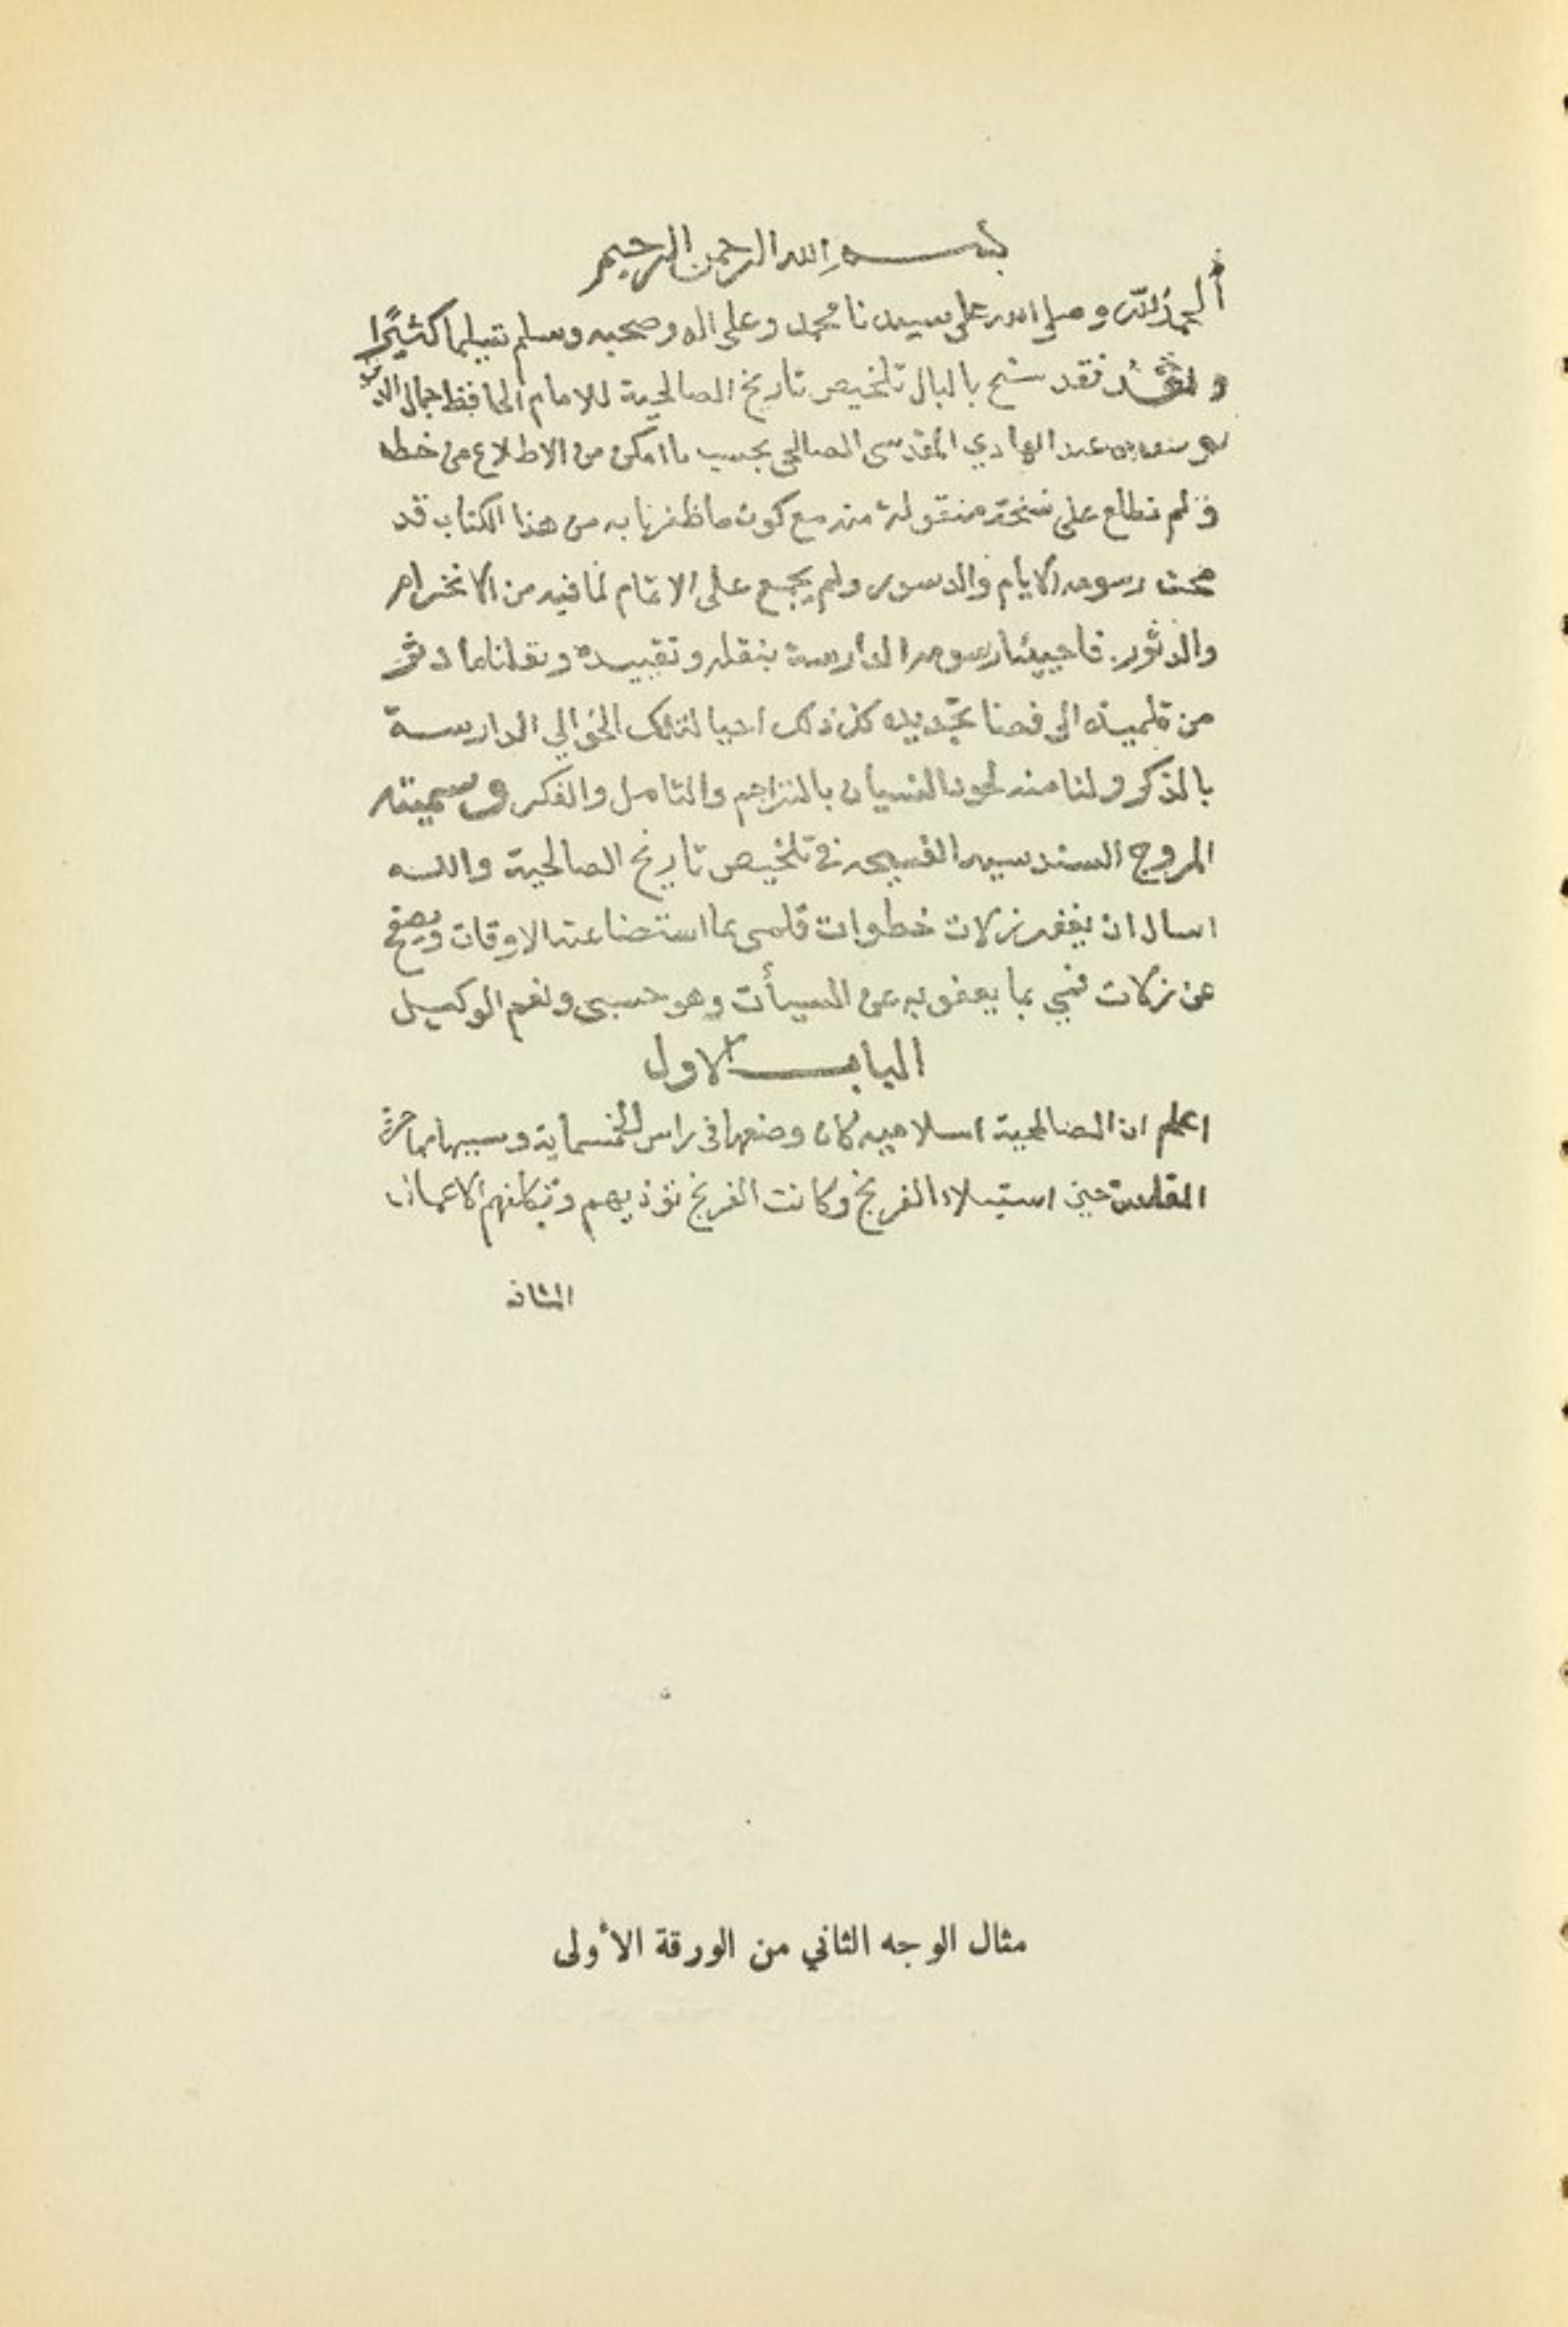 بسم الله الرحمن الرحيم
ألحمد لله وصلى الله على سيدنا محمد وعلى اله وصحبه وسلم تسليما كثيرًا
وبعد فقد سنح بالبال تلخيص تاريخ الصالحية للامام الحافظ جمال الدين
يوسف بن عبد الهادي المقدسي الصالحي بحسب ما امكن من الاطلاع من خطه
فلم نطلع على نسخة منقولة منه مع كون ما ظفرنا به من هذا الكتاب قد
محت رسومه الايام والدسور ولم يجمع على الاتمام لما فيه من الانخرام
والدثور. فاحيينا رسومه الدارسة بنقله وتقييده ونقلنا ما دثر
من تجديده كان ذلك احيا لتلك الخوالي الدارسة
بالذكر ولنا منه النسيان بالتراجم والتامل والفكر وسميته
المروج السندسيه الفسيحه في تلخيص تاريخ الصالحية والله
اسال ان يغفر زلات خطوات قلمي بما الاوقات ويصفح
عن زلات فمي بما يعفو به عن السيأت وهو حسبي ونعم الوكيل
الباب الاول
اعلم ان الصالحية اسلاميه كان وضعها في راس الخمسماية وسببها مهاجرة
حين استيلاء الفرنج وكانت الفرنج تؤذيهم وتكلفهم الاعمال
الشاقه
مثال الوجه الثاني من الورقة الأولى